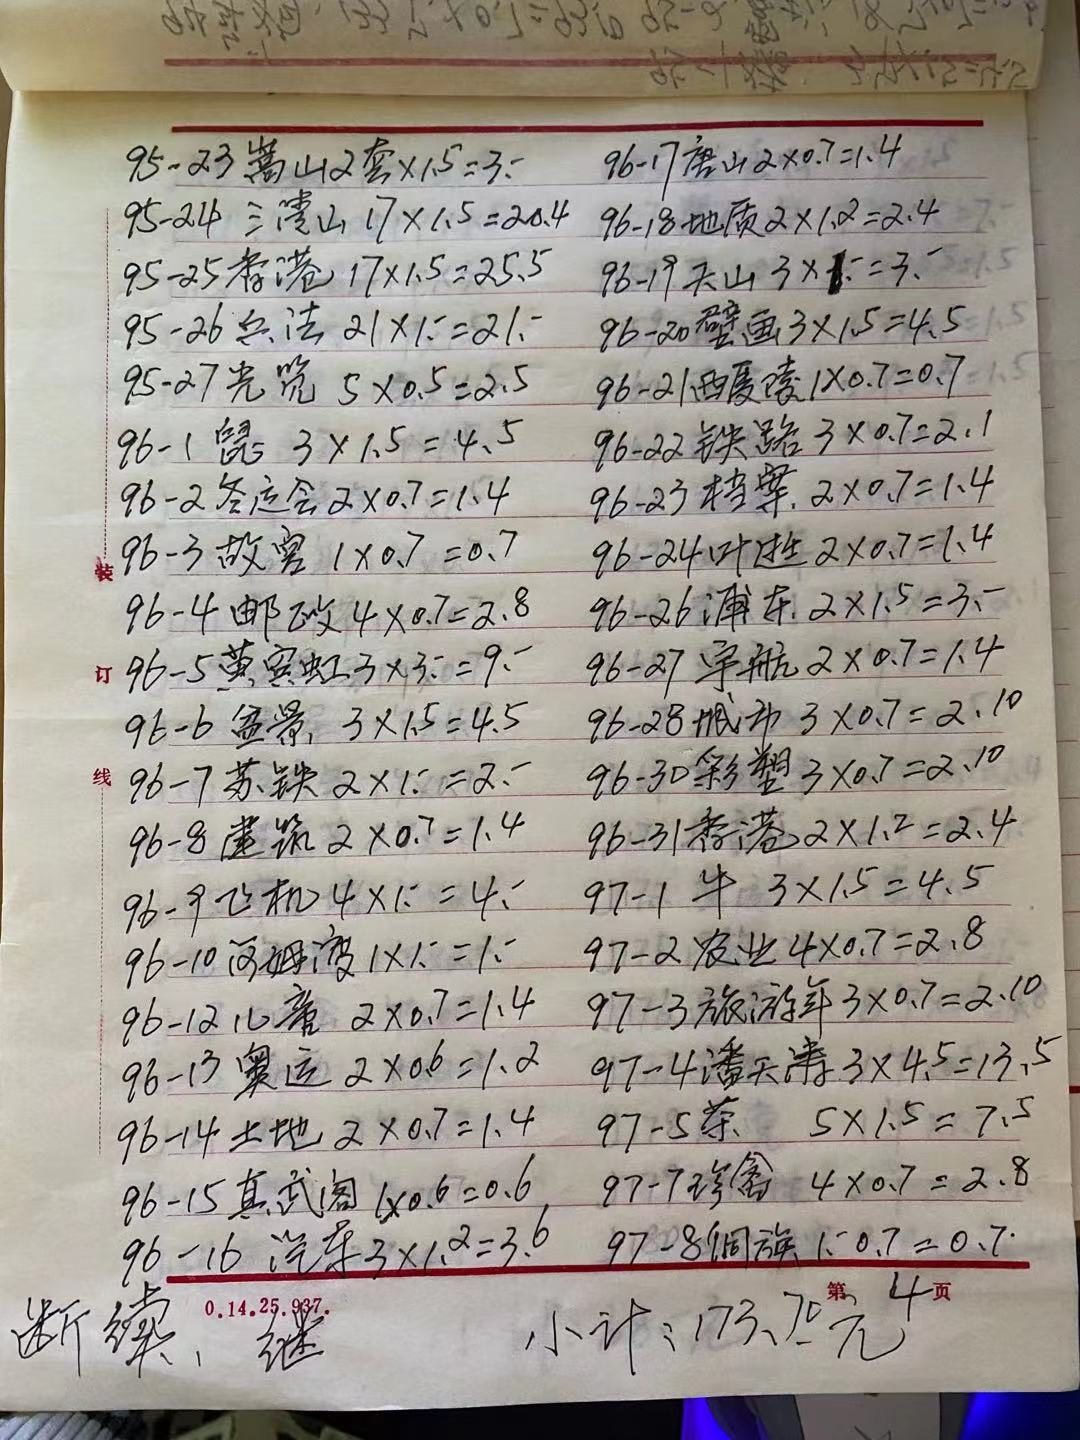 95-23嵩山2套×1.5=3.-
95-24 三清山 17×1.5=20.4
95-25香港 17×1.5=25.5
95-26兵法 21×1.-=21.-
95-27光完 5×0.5=2.5
96-1鼠 3×1.5=4.5
96-2冬运会2×0.7=1.4
96-3故宫 1×0.7=0.7
96-4邮政4×0.7=2.8
96-5黄宾虹3×3.-=9.-
96-6盆景 3×1.5=4.5
96-7苏铁 2×1.-=2.-
96-8建筑 2×0.7=1.4
96-9飞机4×1.-=4.-
96-10河姆渡1×1.-=1.-
96-12儿童 2×0.7=1.4
96-13奥运 2×0.6=1.2
96-14土地 2×0.7=1.4
96-15真武阁 1×0.6=0.6
96-16 汽车3×1.2=3.6
96-17唐山2×0.7=1.4
96-18地质2×1.2=2.4
96-19天山 3×1.-=3.-
96-20壁画3×1.5=4.5
96-21西夏陵1×0.7=0.7
96-22铁路 3×0.7=2.1
96-23档案 2×0.7=1.4
96-24叶挺 2×0.7=1.4
96-26浦东 2×1.5=3.-
96-27宇航 2×0.7=1.4
96-28城市 3×0.7=2.10
96-30彩塑 3×0.7=2.10
96-31香港2×1.2=2.4
97-1 牛 3×1.5=4.5
97-2农业4×0.7=2.8
97-3旅游年3×0.7=2.10
97-4潘天涛3×4.5=13.5
97-5茶 5×1.5=7.5
97-7珍禽 4×0.7=2.8
97-8侗族 1.-0.7=0.7.
装
订
线
0.14.25.937.
第4页
断续、继
小计:173.70元